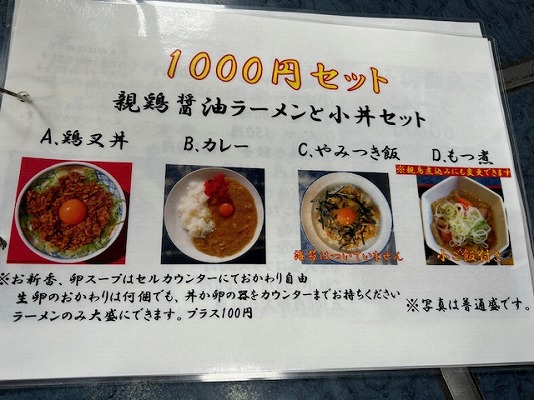 1000円セット
親鶏醤油ラーメンと小丼セット
A.鶏叉丼 B.カレー C.やみつき飯 D.もつ煮
※親鳥煮込みにも変更できます
海苔はついていません 小ご飯付き
※お新香、卵スープはセルカウンターにておかわり自由
生卵のおかわりは何個でも、丼か卵の器をカウンターまでお持ちください
ラーメンのみ大盛にできます。プラス100円
※写真は普通盛です。